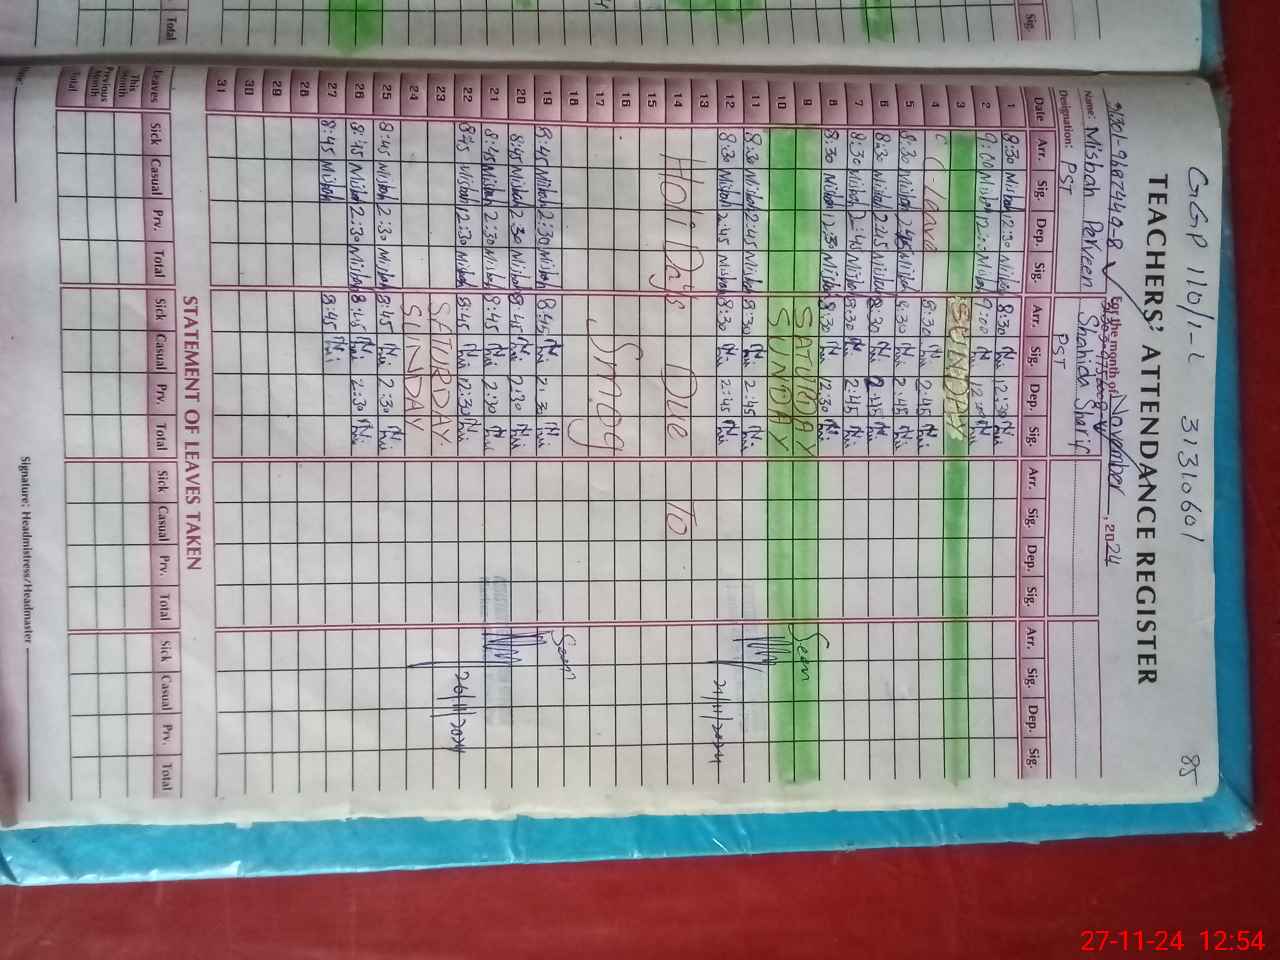 GGP 110/1-L 31310601 85
TEACHERS' ATTENDANCE REGISTER
For the month of November, 2024
Name: Misbah Parveen Shahida Sharif
Designation: PST PST
Date Arr. Sig. Dep. Sig. Arr. Sig. Dep. Sig. Arr. Sig. Dep. Sig. Arr. Sig. Dep. Sig.
1 8:30 Misbah 12:30 Misbah 8:30 12:30
2 9:00 Misbah Misbah 9:00
3 SUNDAY
4 C-leave 8:30 2:45
5 8:30 Misbah 2:45 Misbah 8:30 2:45
6 8:30 Misbah 2:45 Misbah 8:30 2:45
7 8:30 Misbah 2:45 Misbah 8:30 2:45
8 8:30 Misbah 12:30 Misbah 8:30 12:30
9 SATURDAY Seen
10 SUNDAY
11 8:30 Misbah 2:45 Misbah 8:30 2:45
12 8:30 Misbah 2:45 Misbah 8:30 2:45
13
14 Holi Days Due To
15
16
17 Smog
18 Seen
19 8:45 Misbah 2:30 Misbah 8:45 2:30
20 8:45 Misbah 2:30 Misbah 8:45 2:30
21 8:45 Misbah 2:30 Misbah 8:45 2:30
22 8:45 Misbah 12:30 Misbah 8:45 12:30 26/11/2024
23 SATURDAY
24 SUNDAY
25 8:45 Misbah 2:30 Misbah 8:45 2:30
26 8:45 Misbah 2:30 Misbah 8:45 2:30
27 8:45 Misbah 8:45
28
29
30
31
STATEMENT OF LEAVES TAKEN
Leaves Sick Casual Prv. Total Sick Casual Prv. Total Sick Casual Prv. Total Sick Casual Prv. Total
This Month
Previous Month
Total
Signature: Headmistress/Headmaster
Total
Sig.
27-11-24 12:54